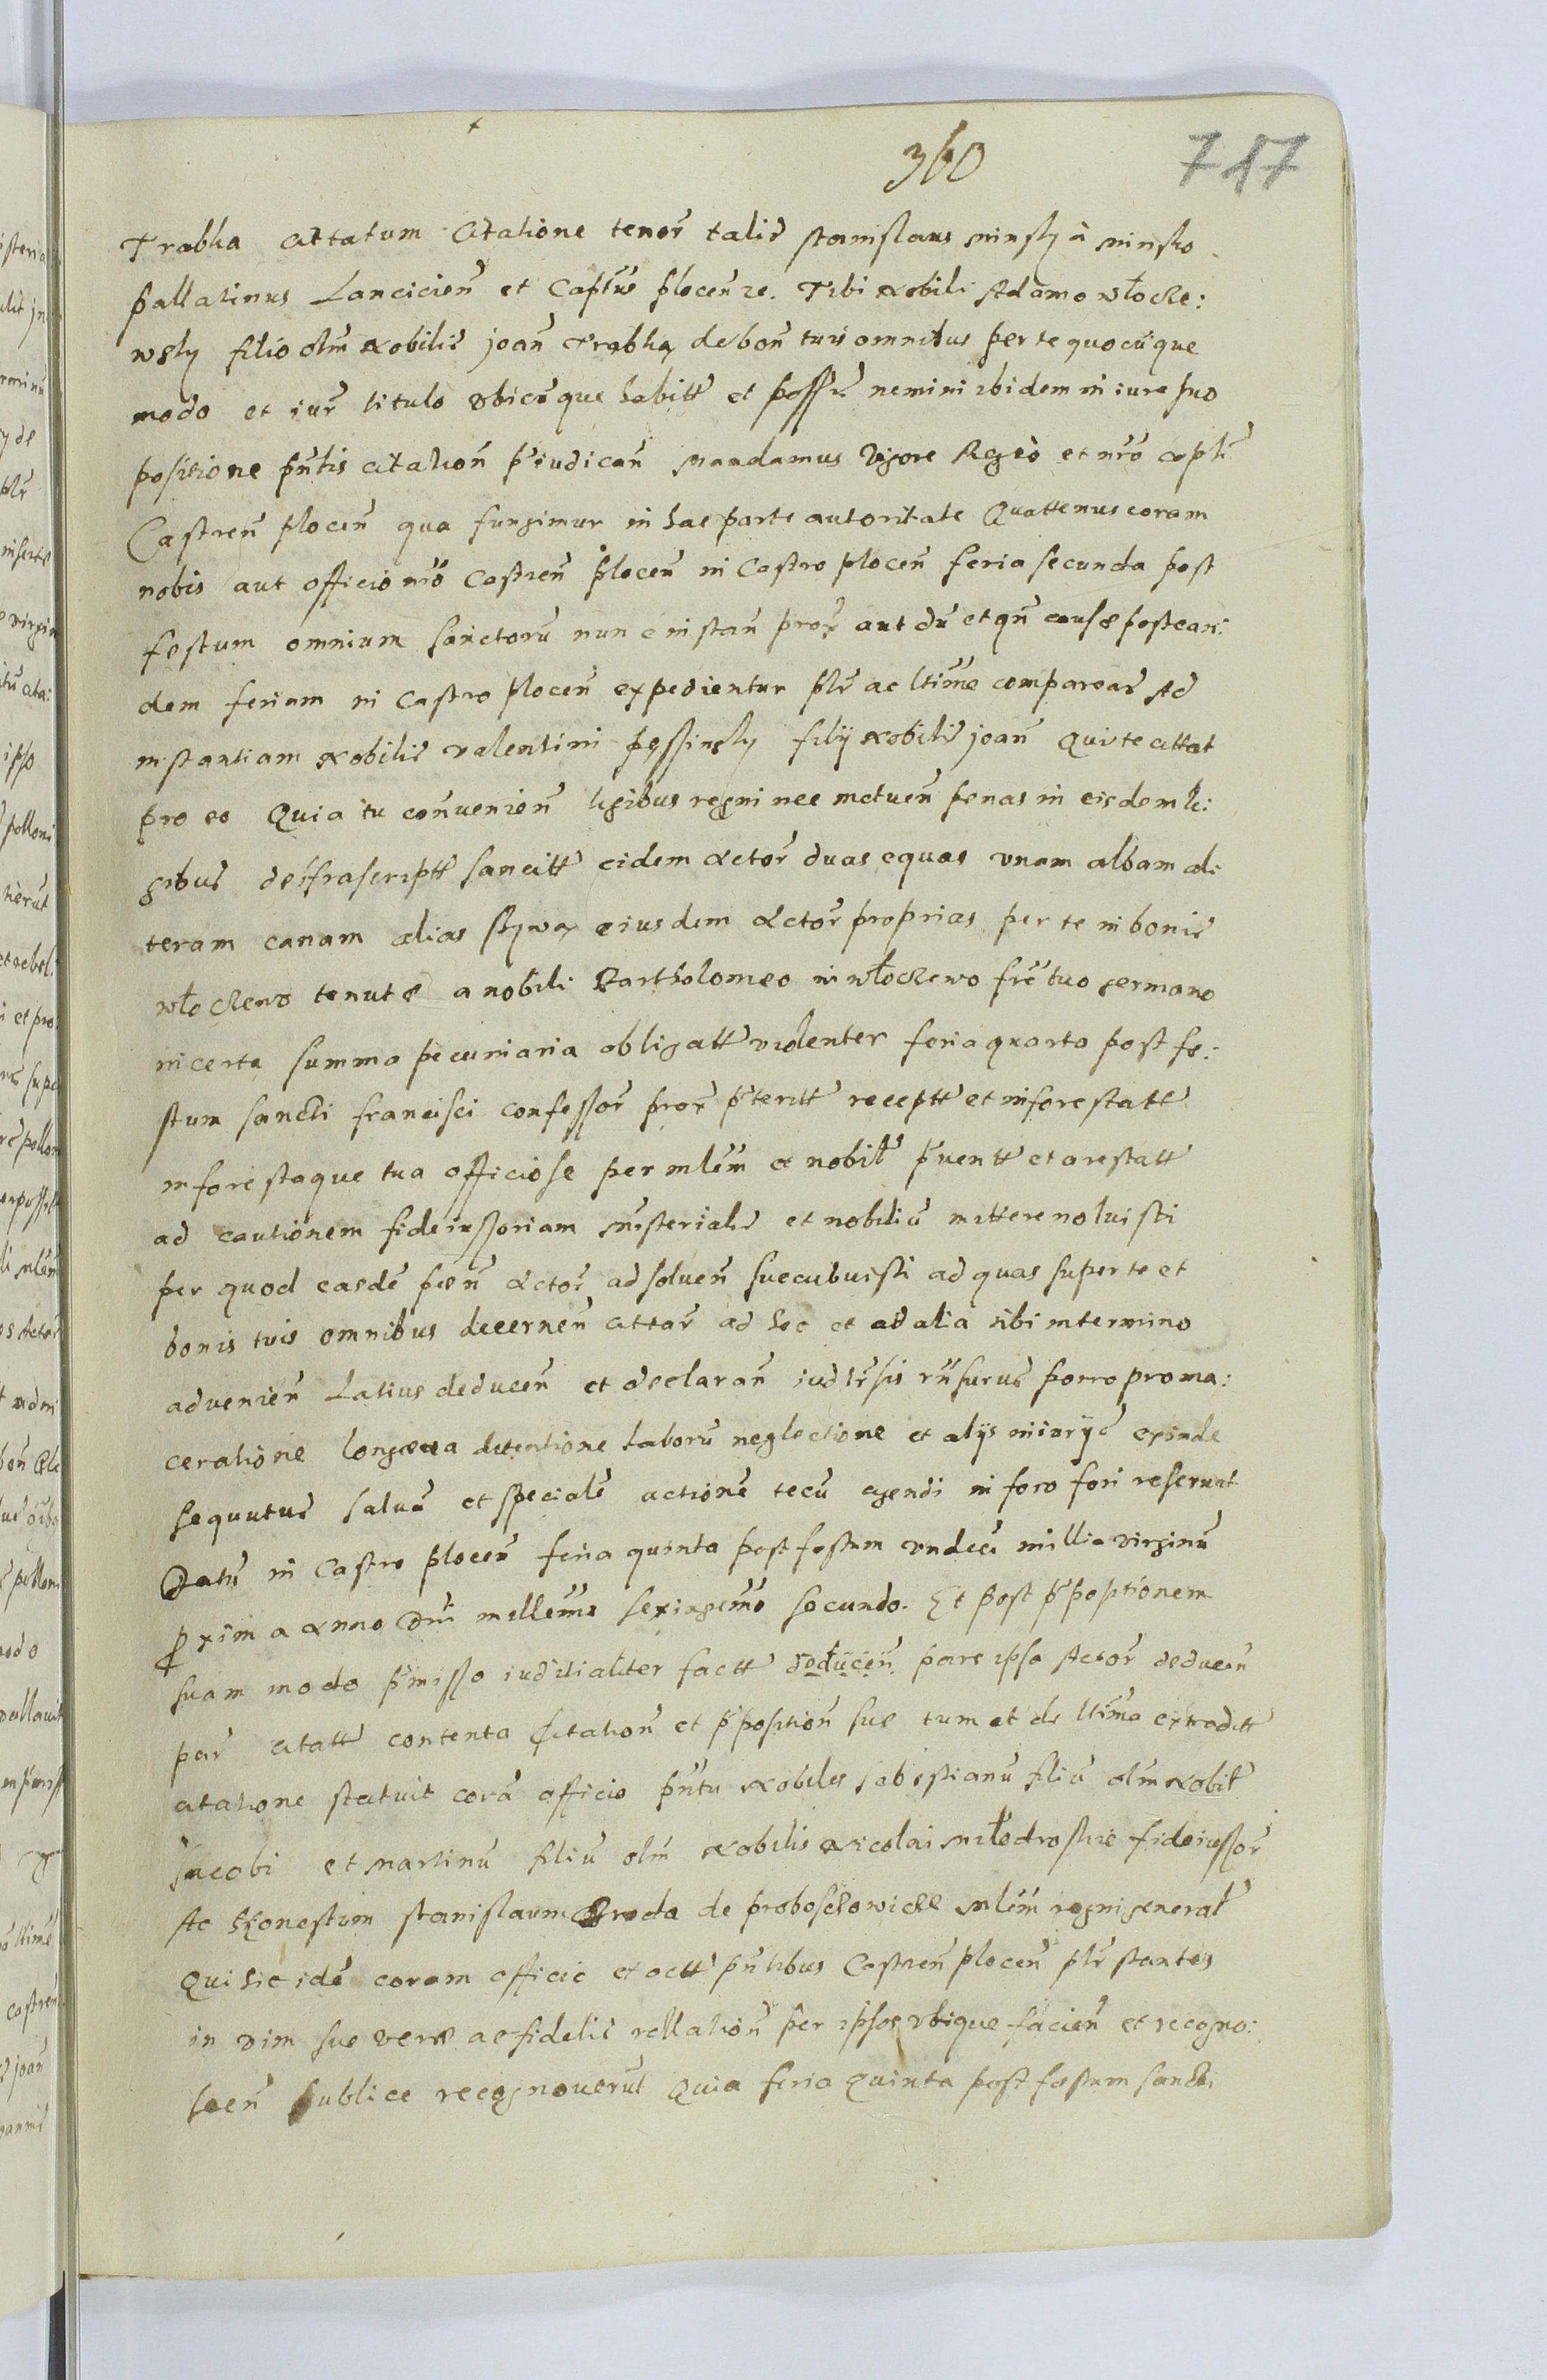 360 717
Trabka citatum Citatione tenor̃ talis Stanislaus Minsky à Minsko
Pallatinus Lancicien̄ et Capt̃us plocen̄ ze. Tibi Nobili Adamo włocke:
wsky filio olm̃ Nobilis Joan̄ Trabka de bon̄ tuis omnibus per te quocūque
modo et iur̃ titulo vbicūque habitt̃ et poss̃ nemini ibidem in iure suo
positione pñtis citation̄ p̃iudican̄ Mandamus Vigore Regio et nr̃o capt̃
Castren̄ plocen̄ qua fungimur in hac parte autoritate Quattenus coram
nobis aut officio nr̃o Castren̄ plocen̄ in Castro plocen̄ feria secunda post
festum omnium sanctorū nunc instan̄ prox̃ aut dū et qn̄ causæ post ean:
dem feriam in Castro plocen̄ expedientur plr̃ ac ltime compareas Ad
instantiam Nobilis Valentini pessinsky filij Nobilis Joan̄ Qui te cittat
pro eo Quia tu con̄uenien̄ legibus regni nec metuen̄ penas in eisdem le:
gibus de ifrascriptt̃ sancitt̃ eidem Actor̃ duas equas vnam albam al:
teram canam alias siwą eiusdem Actor̃ proprias per te in bonis
włockewo tenutæ a nobili Bartholomeo in włockewo frẽ tuo germano
in certa summa pecuniaria obligatt̃ violenter feria quarta post fe:
stum sancti francisci confessor̃ prox̃ p̃teritt̃ receptt̃ et inforestatt̃
in foresta que tua officiose per mlẽm et nobil̃ p̃uentt̃ et arestatt̃
ad cautionem fideiussoriam Misterialis et nobiliū mittere noluisti
per quod easdẽ pen̄ Actor̃ ad soluen̄ succubuisti ad quas super te et
bonis tuis omnibus decernen̄ cittar̃ ad hoc et ad alia tibi in termino
aduenien̄ Latius deducen̄ et declaran̄ iud ltr̃sis rñsurus porro pro ma:
ceratione longæua detentione laborū neglectione et alijs iniurijs exinde
sequutus saluā et specialẽ actionẽ tecū agendi in foro fori reseruat
Datū in Castro plocen̄ feria quinta post festum vndeci millia virginū
Proxima Anno Dnĩ millemo sexingemo secundo. Et post p̃positionem
suam modo p̃misso iuditialiter factt̃ deducen̄ pars ipsa Actor̃ deducen̄
par̃ citatt̃ contenta Citation̄ et p̃position̄ sue tum et de ltima extraditt̃
citatione statuit corā officio pñti Nobiles Sebestianū filiū olm̃ Nobil̃
Jacobi et Martinū filiū olm̃ Nobilis Nicolai Młodroskie fideiussor̃
Ac Honestum Stanislaum Broda de proboschowicze Mlẽm regni general̃
Qui hic idẽ coram officio et actt̃ pñtibus Castren̄ plocen̄ plr̃ stantes
in vim sue veræ ac fidelis rellation̄ per ipsos vtique facien̄ et recogno:
scen̄ publice recognouerūt Quia feria quinta post festum sancti